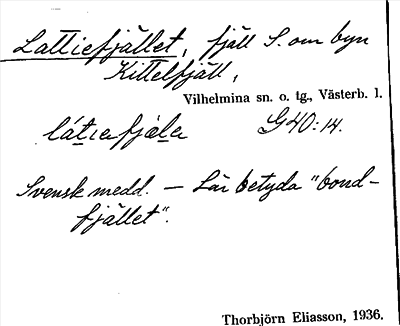 Lattiefjället, fjäll S. om byn
Kittelfjäll,
Vilhelmina sn. o. tg., Västerb. l.
látiefjäla G40:14.
Svensk medd. — Lär betyda "bond-
fjället".
Thorbjörn Eliasson, 1936.